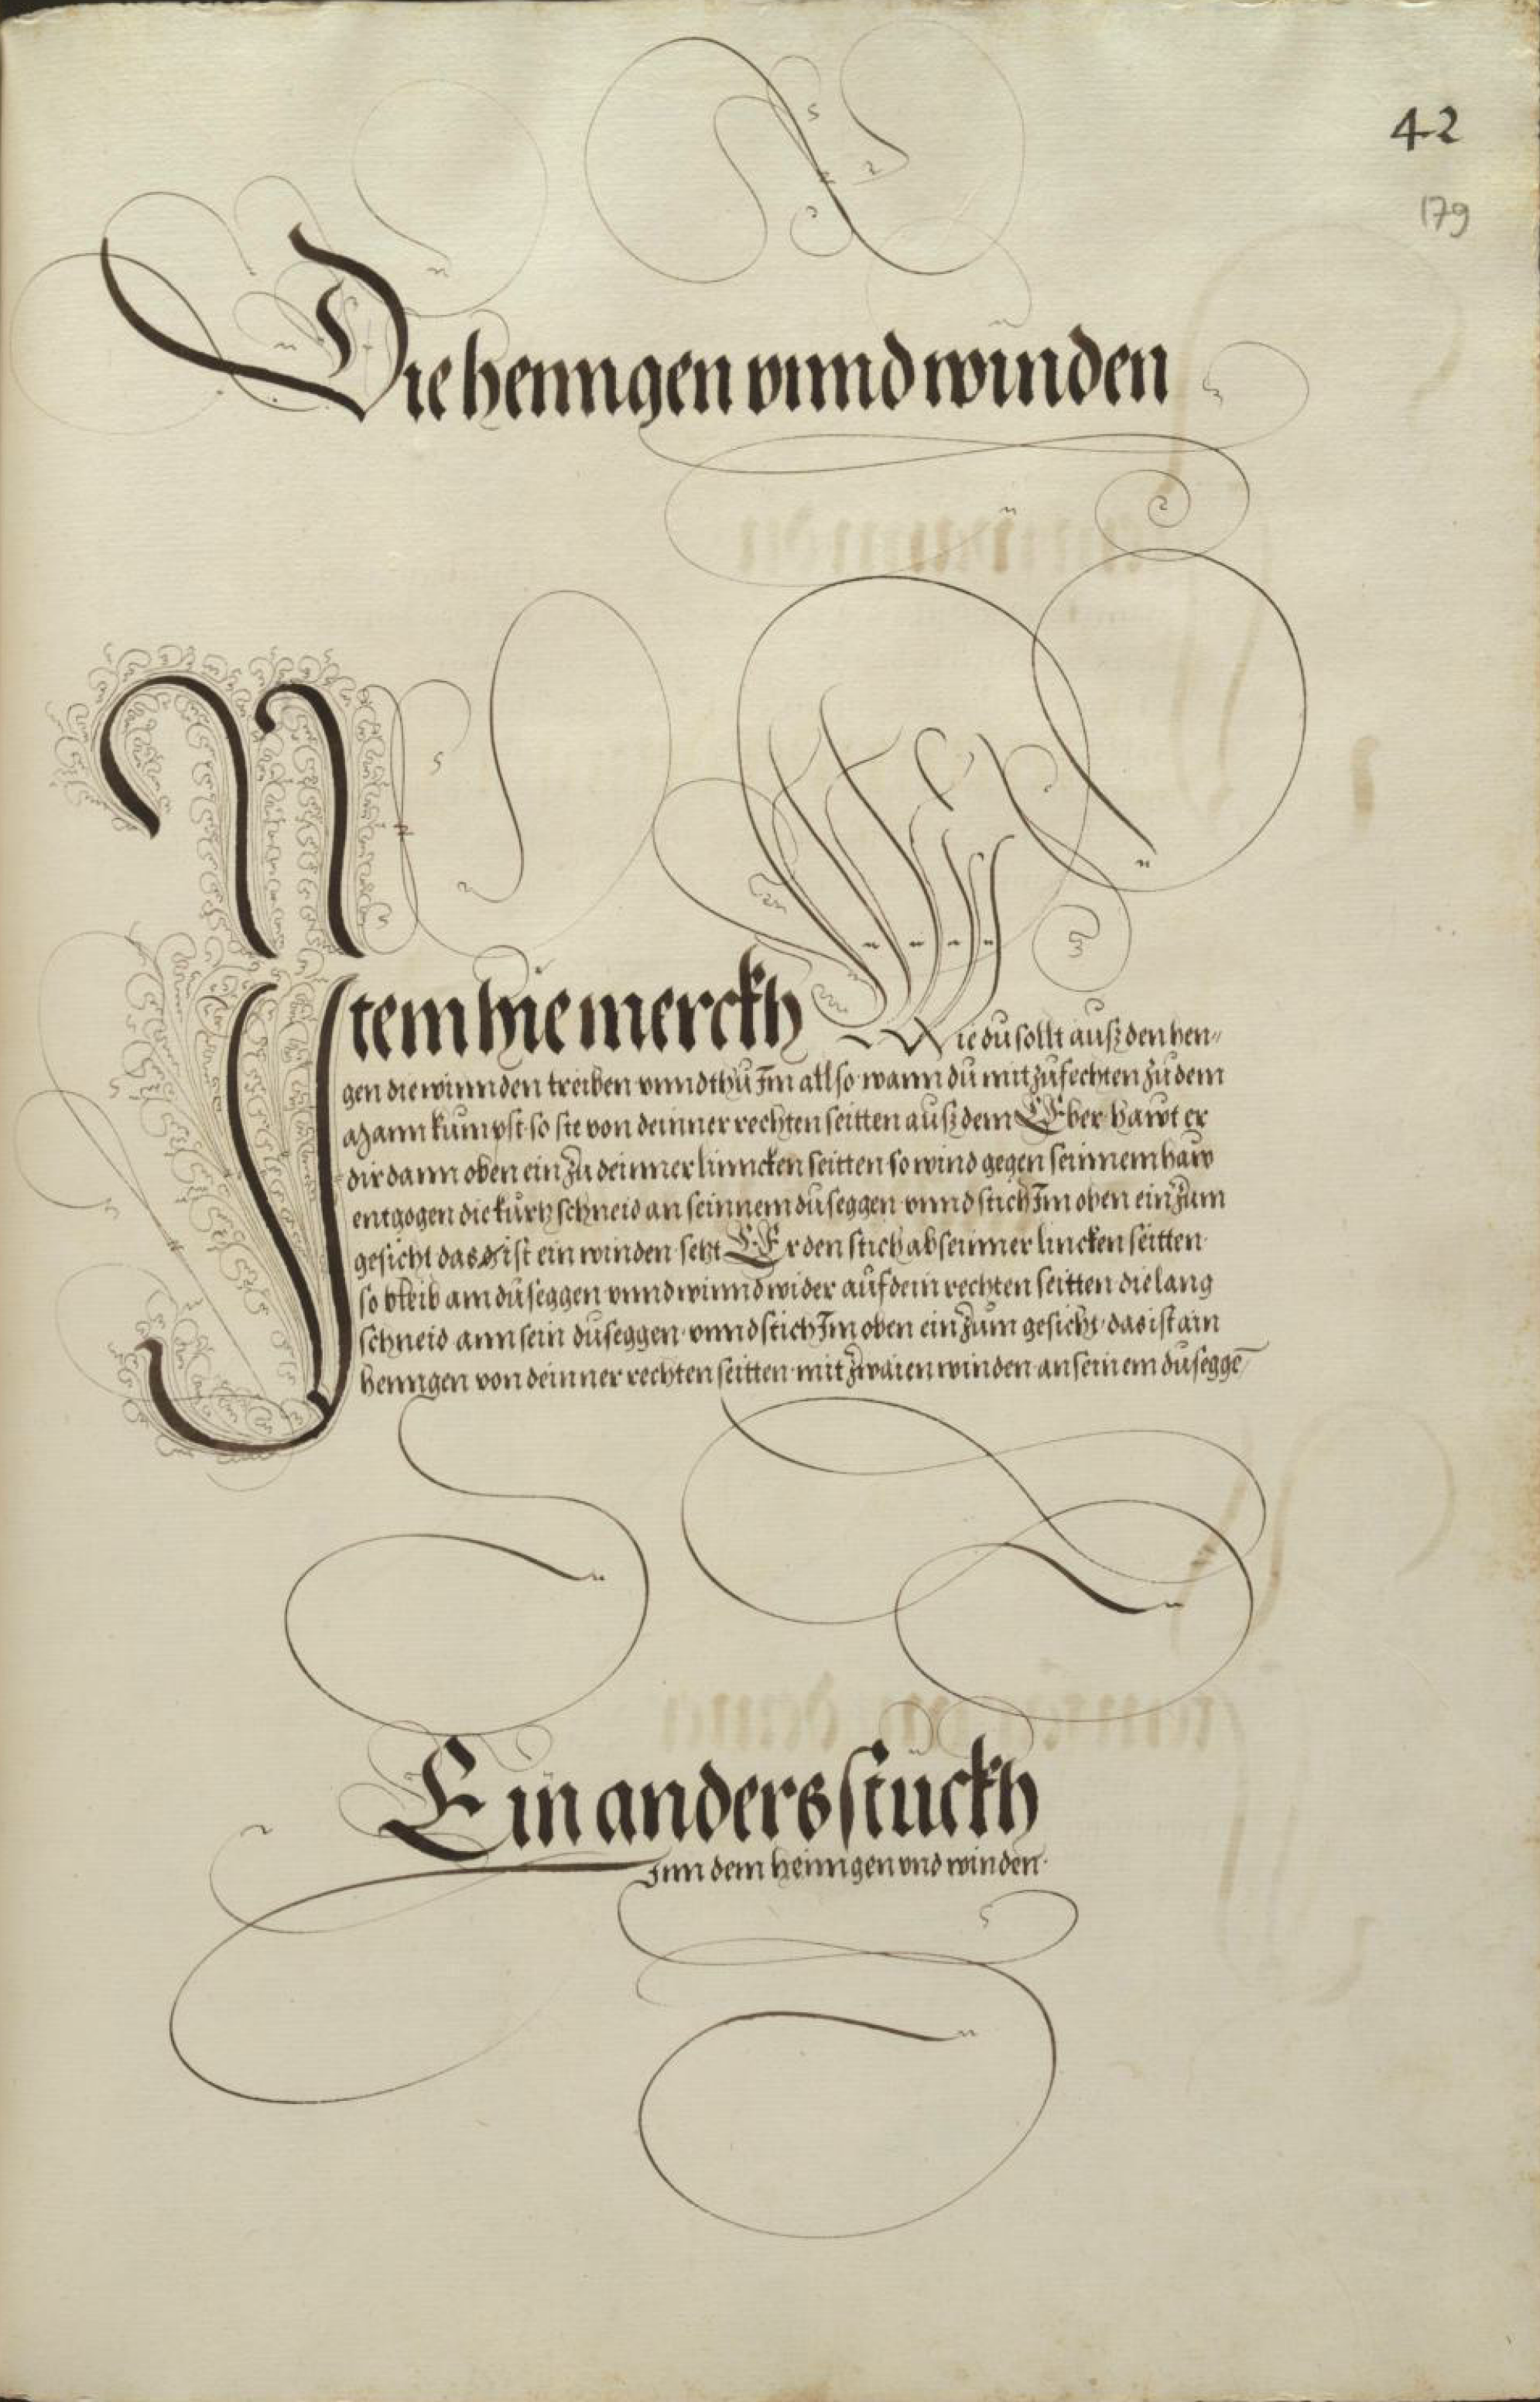 42
179
Die henngen vnnd winden
Item hie merckh Wie du sollt auß den hen-
gen die winnden treiben vnnd thu Im allso wann du mit zufechten zu dem
mann kumpst so ste von deinner rechten seitten auß dem EEber hawt er
dir dann oben ein zu deinner linncken seitten so wind gegen seinnem haw
entgogen die kurtz schneid an seinnem duseggen vnnd stich Im oben ein zum
gesicht das ist ein winden setzt EEr den stich ab seinner lincken seitten
so bleib am duseggen vnnd winnd wider auf dein rechten seitten die lang
schneid ann sein duseggen vnnd stich Im oben ein zum gesicht das ist ain
henngen von deinner rechten seitten mit zwaien winden an seinem duseggē
Ein anders stuckh
Inn dem henngen vnd winden